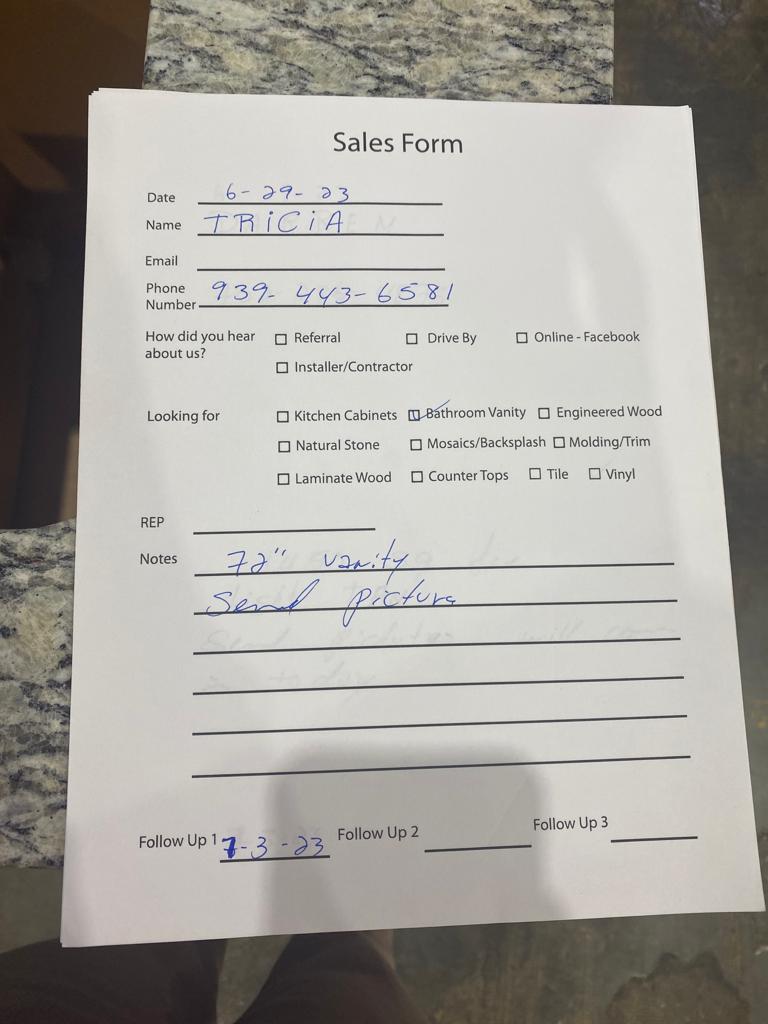 Sales Form
Date 6-29-23
Name TRiCiA
Email
Phone Number 939-443-6581
How did you hear about us?
Referral Drive By Online - Facebook
Installer/Contractor
Looking for
Kitchen Cabinets Bathroom Vanity Engineered Wood
Natural Stone Mosaics/Backsplash Molding/Trim
Laminate Wood Counter Tops Tile Vinyl
REP
Notes 72" vanity
Send picture
Follow Up 1 7-3-23 Follow Up 2 Follow Up 3